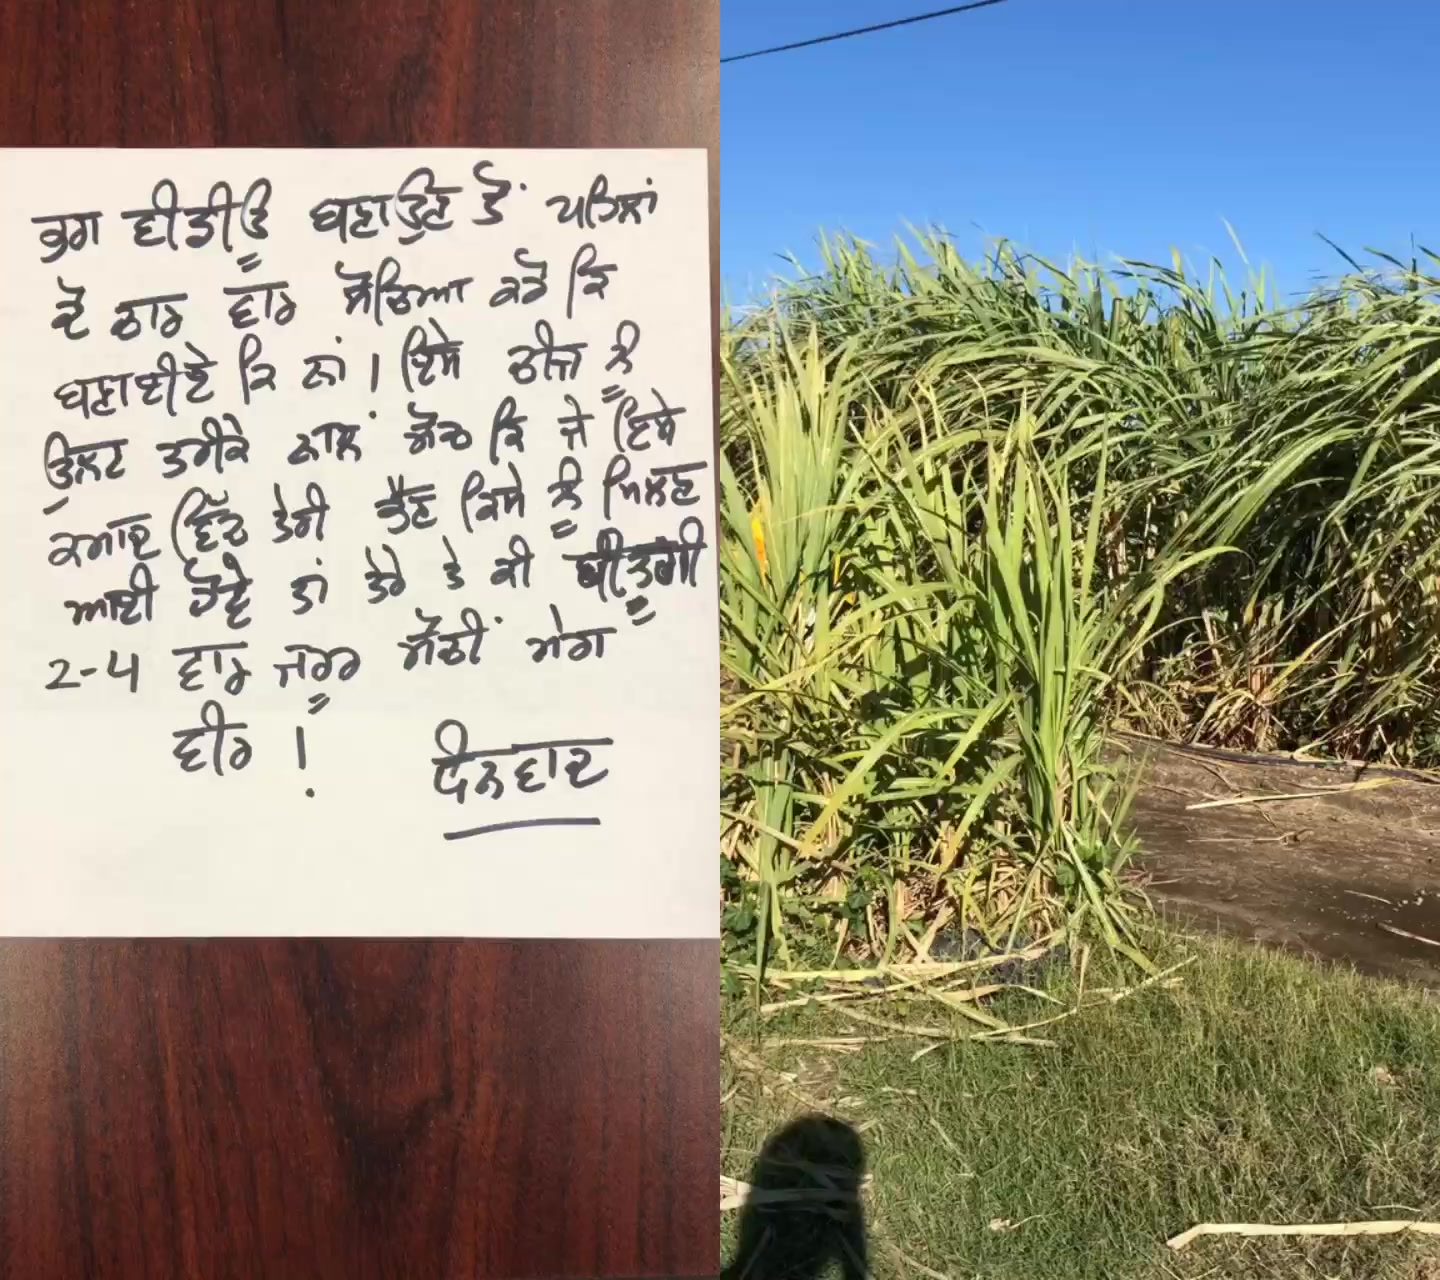 ਭਰਾ ਵੀਡੀਓ ਬਣਾਉਣ ਤੋਂ ਪਹਿਲਾਂ
ਦੋ ਚਾਰ ਵਾਰ ਸੋਚਿਆ ਕਰੋ ਕਿ
ਬਣਾਈਏ ਕਿ ਨਾਂ । ਇਸ ਚੀਜ ਨੂੰ
ਉਲਟ ਤਰੀਕੇ ਨਾਲ ਸੋਚ ਕਿ ਜੇ ਇਸੇ
ਕਮਾਦ ਵਿੱਚ ਤੇਰੀ ਭੈਣ ਕਿਸੇ ਨੂੰ ਮਿਲਣ
ਆਈ ਹੋਵੇ ਤਾਂ ਤੇਰੇ ਤੇ ਕੀ ਬੀਤੂਗੀ
2-4 ਵਾਰ ਜਰੂਰ ਸੋਚੀਂ ਮੇਰਾ
ਵੀਰ !
ਧੰਨਵਾਦ